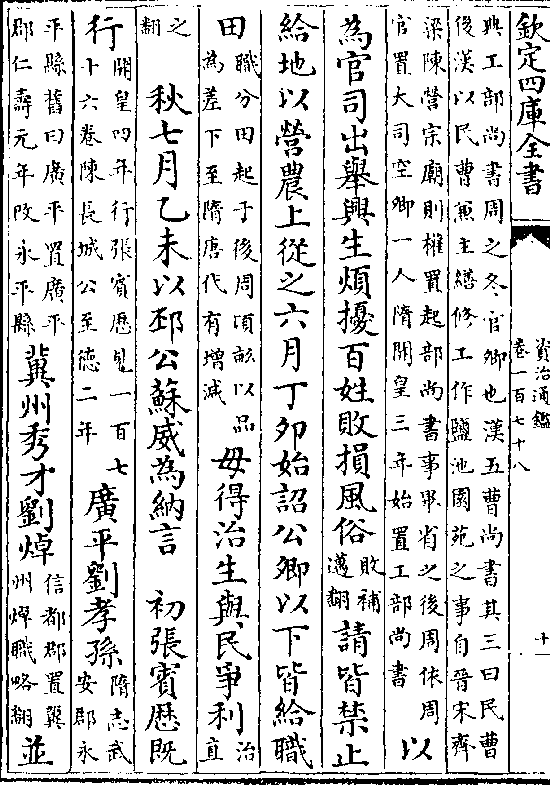 欽定四庫全書
資治通鑑
卷一百七十八
十一
興工部尚書周之冬官卿也漢五曹尚書其三曰民曹
後漢以民曹兼主繕修工作鹽池園苑之事自晉宋齊
梁陳營宗廟則權置起部尚書事畢省之後周依周
官置大司空卿一人隋開皇三年始置工部尚書
以
為官司出舉興生煩擾百姓敗損風俗
敗補
邁翻
請皆禁止
給地以營農上從之六月丁卯始詔公卿以下皆給職
田
職分田起于後周頃畝以品
為差下至隋唐代有增減
毋得治生與民爭利
治直
之
翻
秋七月乙未以邳公蘇威為納言
初張賓歷既
行
開皇四年行張賓歷見一百七
十六卷陳長城公至德二年
廣平劉孝孫
隋志武
安郡永
平縣舊曰廣平置廣平
郡仁壽元年改永平縣
冀州秀才劉焯
信都郡置冀
州焯職略翻
並